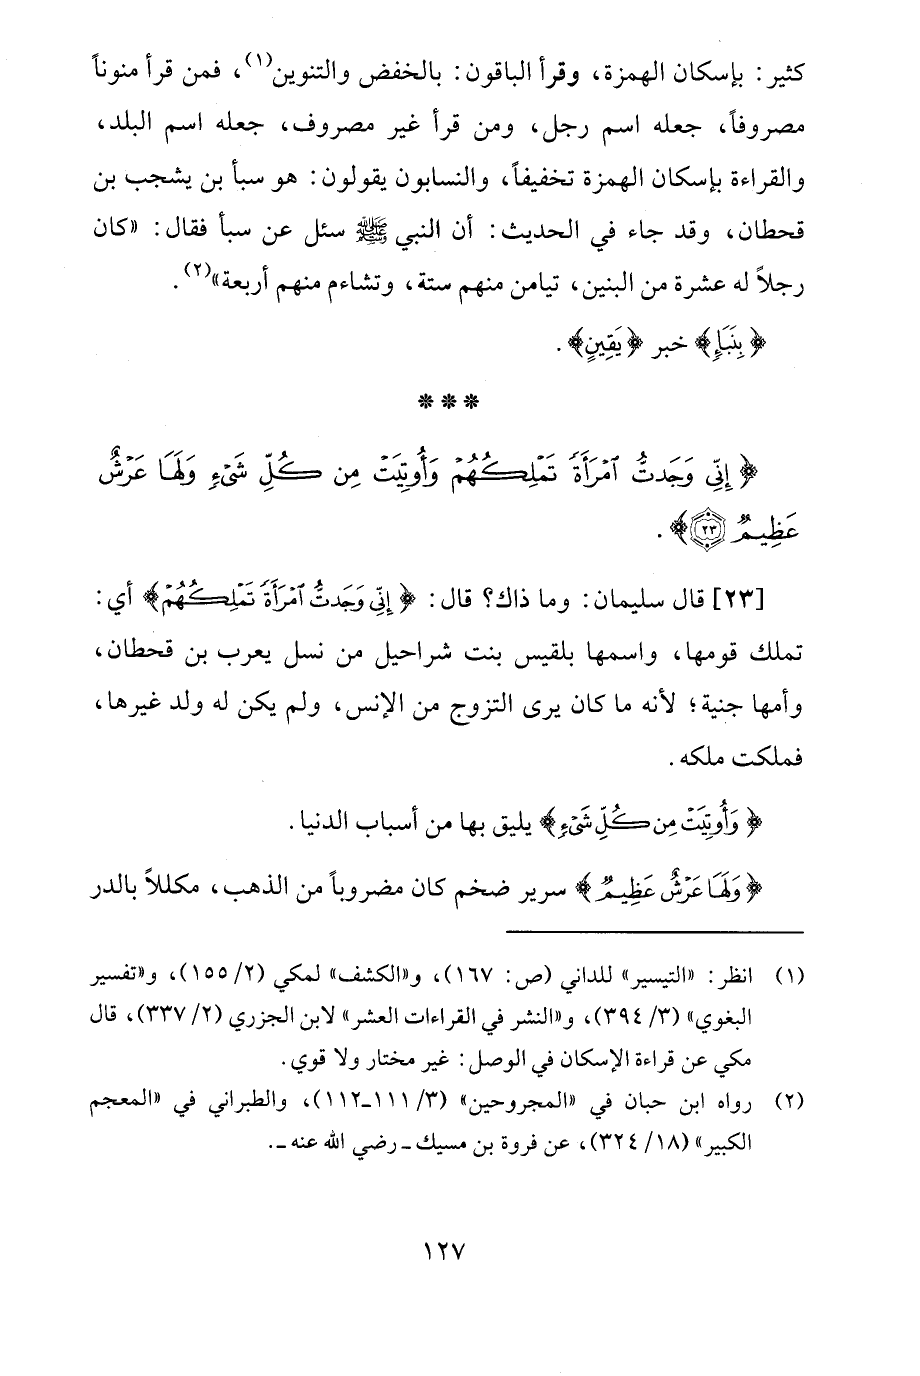 كثير: بإسكان الهمزة، وقرأ الباقون: بالخفض والتنوين(١)، فمن قرأ منوناً
مصروفاً، جعله اسم رجل، ومن قرأ غير مصروف، جعله اسم البلد،
والقراءة بإسكان الهمزة تخفيفاً، والنسابون يقولون: هو سبأ بن يشجب بن
قحطان، وقد جاء في الحديث: أن النبي ﷺ سئل عن سبأ فقال: «كان
رجلاً له عشرة من البنين، تيامن منهم ستة، وتشاءم منهم أربعة»(٢).
﴿بِنَبَإٍ﴾ خبر ﴿يَقِينٍ﴾.
* * *
﴿إِنِّي وَجَدتُّ ٱمْرَأَةً تَمْلِكُهُمْ وَأُوتِيَتْ مِن كُلِّ شَيْءٍ وَلَهَا عَرْشٌ
عَظِيمٌ ٢٣﴾.
[٢٣] قال سليمان: وما ذاك؟ قال: ﴿إِنِّي وَجَدتُّ ٱمْرَأَةً تَمْلِكُهُمْ﴾ أي:
تملك قومها، واسمها بلقيس بنت شراحيل من نسل يعرب بن قحطان،
وأمها جنية؛ لأنه ما كان يرى التزوج من الإنس، ولم يكن له ولد غيرها،
فملكت ملكه.
﴿وَأُوتِيَتْ مِن كُلِّ شَيْءٍ﴾ يليق بها من أسباب الدنيا.
﴿وَلَهَا عَرْشٌ عَظِيمٌ﴾ سرير ضخم كان مضروباً من الذهب، مكللاً بالدر
(١) انظر: «التيسير» للداني (ص: ١٦٧)، و«الكشف» لمكي (٢/ ١٥٥)، و«تفسير
البغوي» (٣/ ٣٩٤)، و«النشر في القراءات العشر» لابن الجزري (٢/ ٣٣٧)، قال
مكي عن قراءة الإسكان في الوصل: غير مختار ولا قوي.
(٢) رواه ابن حبان في «المجروحين» (٣/ ١١١ـ١١٢)، والطبراني في «المعجم
الكبير» (١٨/ ٣٢٤)، عن فروة بن مسيك ـ رضي الله عنه ـ.
١٢٧